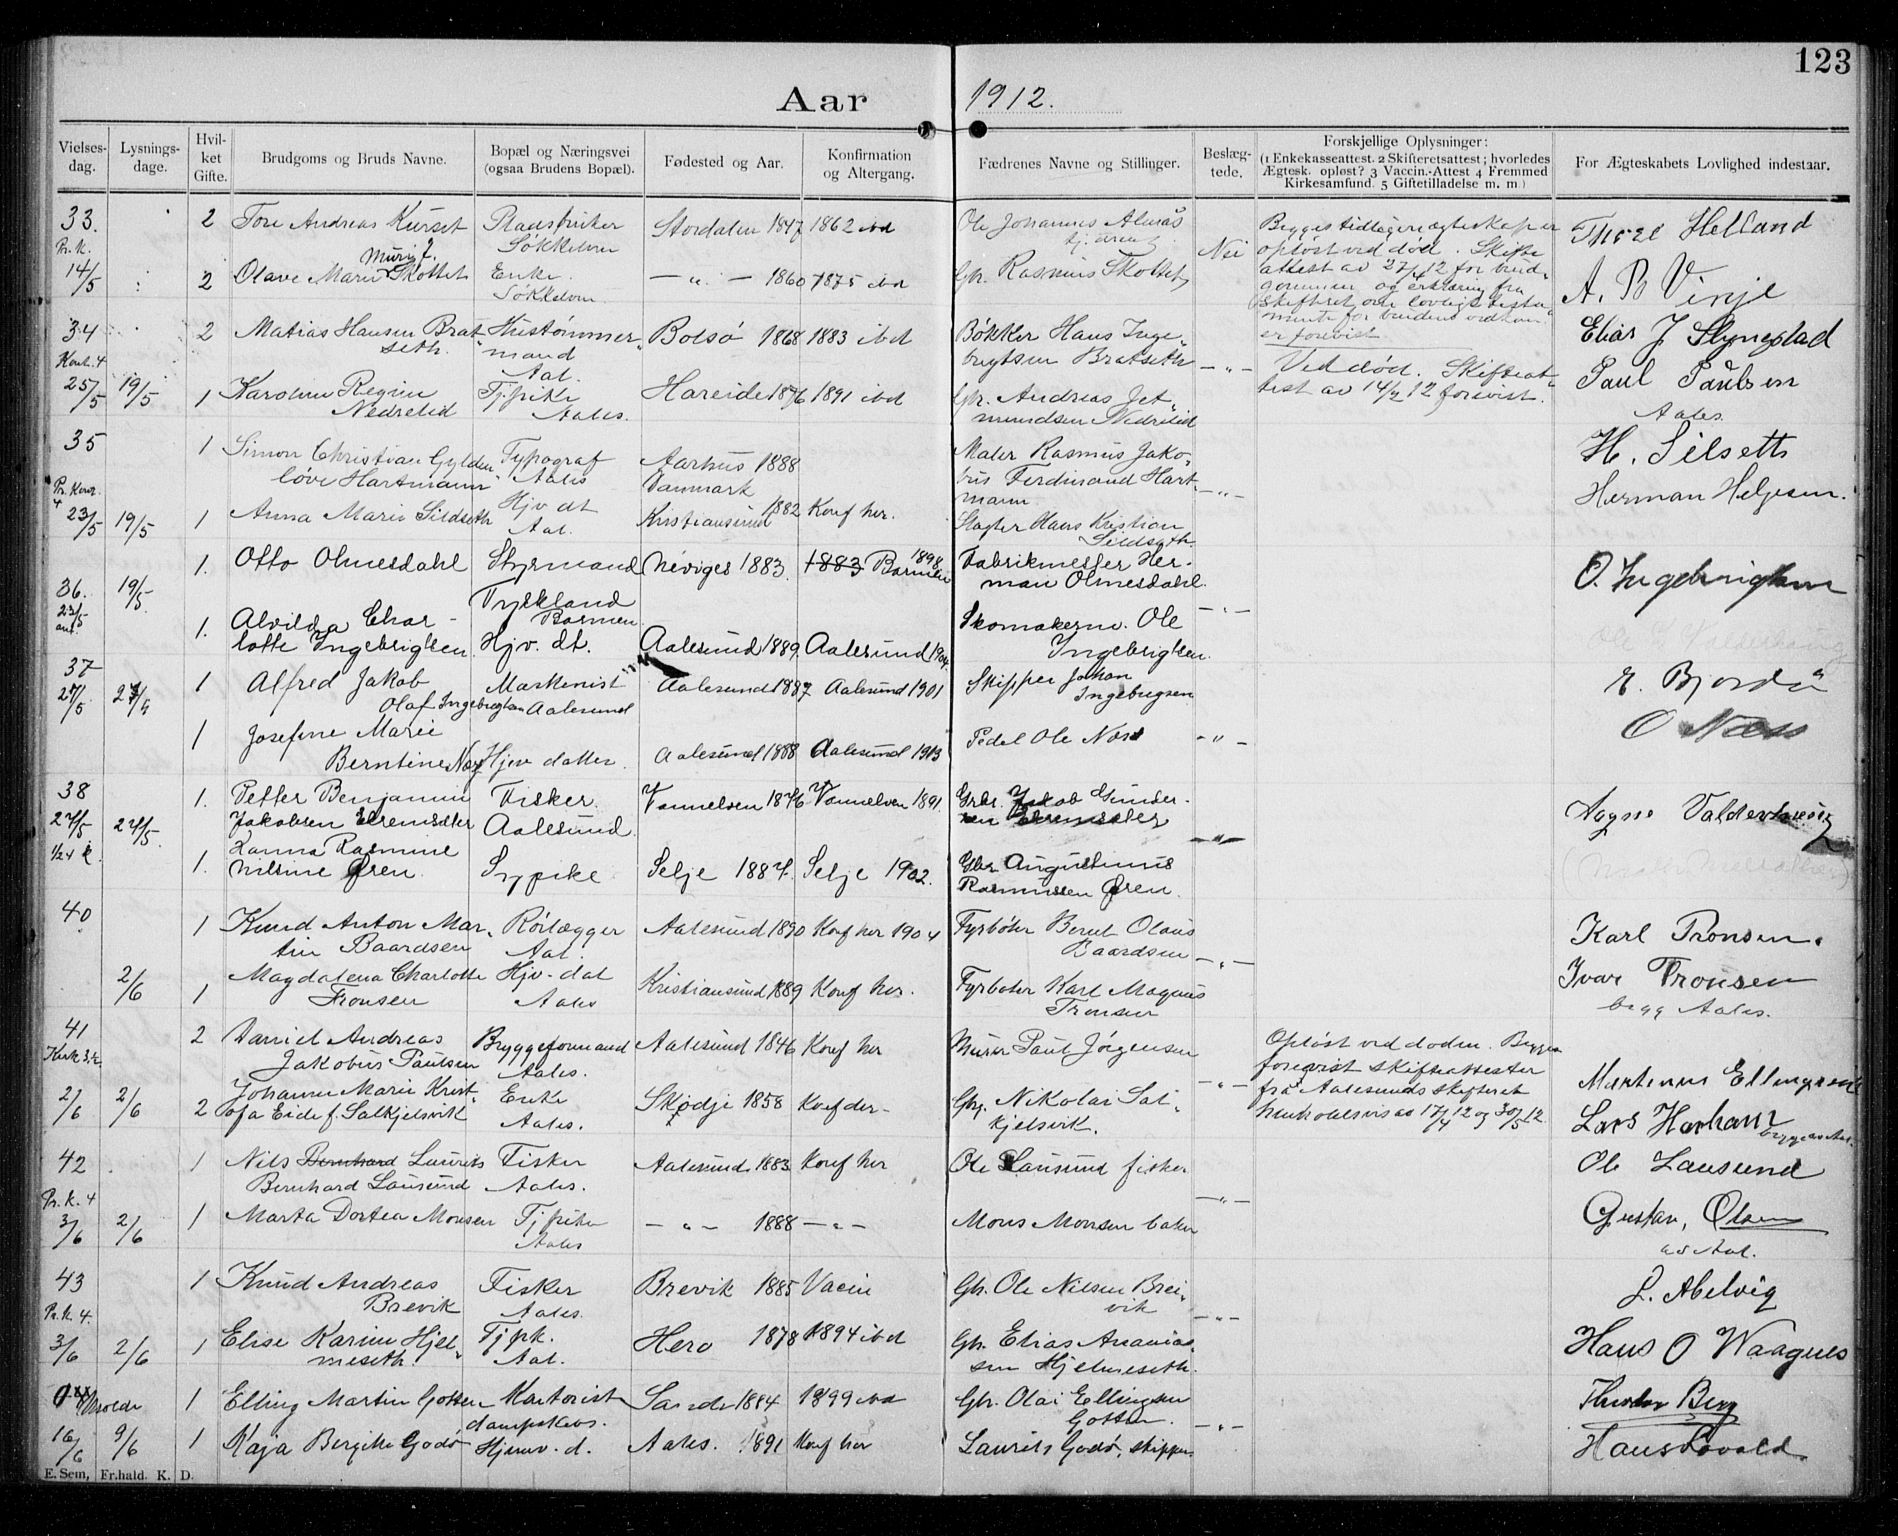 123
Aar 1912.
Vielsesdag. Lysningsdage. Hvilket Gifte. Brudgoms og Bruds Navne. Bopæl og Næringsvei (ogsaa Brudens Bopæl). Fødested og Aar. Konfirmation og Altergang. Fædrenes Navne og Stillinger. Beslægtede. Forskjellige Oplysninger: (1 Enkekasseattest. 2 Skifteretsattest; hvorledes Ægtesk. opløst? 3 Vaccin.-Attest 4 Fremmed Kirkesamfund. 5 Giftetilladelse m. m) For Ægteskabets Lovlighed indestaar.
33. 2 Tore Andreas Kurset Stordalen 1847 1862 ibd Ole Johannes Almås
Nei
Thore Helland
14/5 2 Olave Marie Skottet Enke — „ — 1860 1875 ibd Gbr. Rasmus Skottet
Søkkelven
A. B Vinje
Bygges tidligere ægteskaper
opløst ved død. Skifte
attest av 27/4 12 for brud-
gommen og erklæring fra
skifteret om
er forevist
34 2 Matias Hansen Brat- Hustømmer- Bolsø 1868 1883 ibd Bøkker Hans Inge-
seth. mand brigtsen Bratseth — „ —
Kont. 4 Aal.
Ved død. Skifteat-
test av 14/2 12 forevist.
Elias J Slyngstad
25/5 19/5 1 Karoline Regine Tj.pike Hareide 1876 1891 ibd Gbr. Andreas Jet-
Nedrelid Aales. mundsen Nedrelid
Paul Paulsen
Aales.
35 1 Simon Christian Gylden Typograf Aarhus 1888 Maler Rasmus Jako-
løve Hartmann Aales Danmark bus Ferdinand Hart-
mann — „ —
H. Silseth
23/5 19/5 1 Anna Marie Sildseth Hjv dt Kristiansund 1882 Konf her. Slagter Hans Kristian
Aal. Sildseth
Herman Helgesen.
36. 19/5 1. Otto Olmesdahl Styrmand Neviges 1883. 1883 Barmen 1898 Fabrikmester Her-
Tyskland man Olmesdahl.
Barmen — „ —
O. Ingebrigtsen
23/5 1. Alvilda Char- Hjv. dt. Aalesund 1889. Aalesund 1904. Skomakerm. Ole
lotte Ingebrigtsen Ingebrigtsen.
37
27/5 1 Alfred Jakob Maskenist Aalesund 1887 Aalesund 1901 Skipper Johan
Olaf Ingebrigtsen Aalesund Ingebrigsen
E. Bjordø
1 Josefine Marie
Berntine Næs Hjev datter. Aalesund 1888 Aalesund 1903 Pedel Ole Næss — „ —
O Næss
38 1. Petter Benjamin Fisker. Vannelven 1876 Vannelven 1891. Grbr. Jakob Gunder-
27/5 27/5. Jakobsen Aalesund. sen — „ —
Aagne
1. Lanna Rasmine
Nilsine Øren. Sypike Selje 1887. Selje 1902. Gbr Augustinus
Rasmussen Øren.
40 1 Knud Anton Mar- Rørlægger Aalesund 1890 Konf her 1904 Fyrbøter Bernt Olaus
tin Baardsen Aal. Baardsen — „ —
Karl Tronsen.
2/6 1 Magdalena Charlotte Hjv-dat Kristiansund 1889 Konf her. Fyrbøter Karl Magnus
Tronsen Aales Tronsen
Ivar Tronsen
begg Aales.
41 2 Daniel Andreas Bryggeformand Aalesund 1846 Konf her Murer Paul Jørgensen
Jakobus Paulsen Aales. — „ —
Opløst ved døden. Begges
forevist skifteattester
fra Aalesunds skifteret
henholdsvis av 17/4 12 og 30/5 12.
Martinus Ellingseter
2/6 2/6 2 Johanne Marie Krist- Enke Skodje 1858 Konf der- Gbr. Nikolai Sol-
ofa Eide f. Solkjelsvik Aales. kjelsvik.
Lars Harhans
42 1 Nils Bernhard Laurits Fisker Aalesund 1883 Konf her Ole Lausund fisker
Bernhard Lausund Aales.
Ole Lausund
Pr. k. 4 — „ —
3/6 2/6 1 Marta Dortea Monsen Tj.pike — „ — 1888 — „ — Mons Monsen baker
Aales
Gustav, Olsen
av Aal.
43 1 Knud Andreas Fisker Brevik 1885 Vacin Gbr. Ole Nilsen Brei-
Brevik Aales. vik
Pr. k. 4. — „ —
L. Abelvig
3/6 2/6 1 Elise Karine Hjel- Tj.pk. Herø 1878 1894 ibd Gbr. Elias Ananias-
meseth Aal. sen Hjelmeseth.
Hans O Waagnes
Molde 1 Elling Martin Gotten Kontorist Sande 1884 1899 ibd Gbr. Olai Ellingsen
dampskibs. Gotten. — „ —
Theodor Berg
16/6 9/6 1 Kaja Bergitte Godø Hjemv. d. Aales. 1891 Konf her Laurits Godø, skipper
Hans Lovold
E. Sem, Fr.hald. K. D.